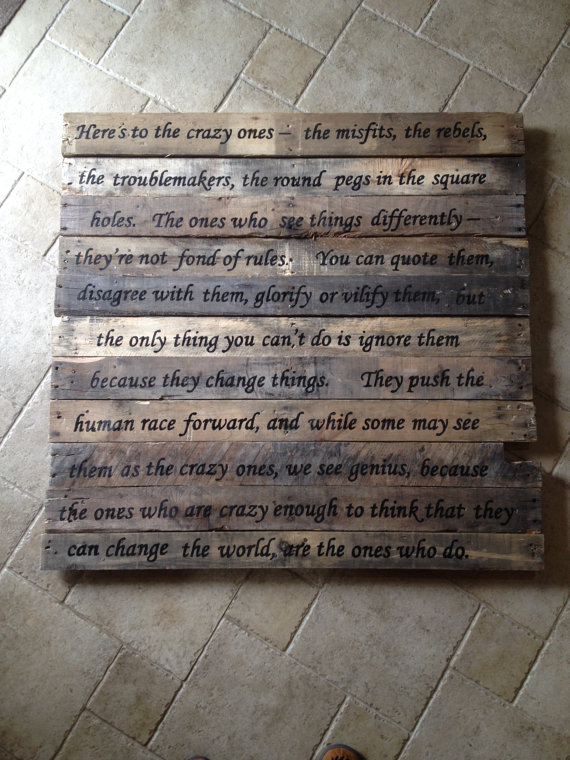 Here's to the crazy ones – the misfits, the rebels,
the troublemakers, the round pegs in the square
holes. The ones who see things differently –
they're not fond of rules. You can quote them,
disagree with them, glorify or vilify them, but
the only thing you can't do is ignore them
because they change things. They push the
human race forward, and while some may see
them as the crazy ones, we see genius, because
the ones who are crazy enough to think that they
can change the world, are the ones who do.